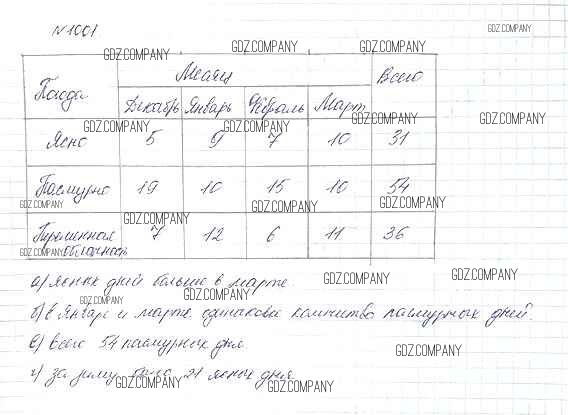 N1001.
GDZ.COMPANY
GDZ.COMPANY GDZ.COMPANY GDZ.COMPANY
Погода Месяц Всего
Декабрь Январь Февраль Март
GDZ.COMPANY GDZ.COMPANY GDZ.COMPANY GDZ.COMPANY
Ясно 5 9 7 10 31
Пасмурно 19 10 15 10 54
GDZ.COMPANY GDZ.COMPANY GDZ.COMPANY GDZ.COMPANY
Переменная облачность 7 12 6 11 36
GDZ.COMPANY
а) ясных дней больше в марте
GDZ.COMPANY GDZ.COMPANY GDZ.COMPANY
б) в Январе и марте одинаковое количество пасмурных дней.
в) всего 54 пасмурных дня
GDZ.COMPANY
г) за зиму было 21 ясных дня
GDZ.COMPANY GDZ.COMPANY